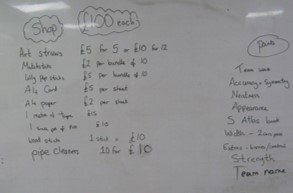 Shop
£100 each
Art straws £5 for 5 or £10 for 12
Matchsticks £2 per bundle of 10
Lolly pop sticks £5 per bundle of 10
A4 Card £5 per sheet
A4 paper £2 per sheet
1 metre of tape £15
1 £10
sticks 1 stick = £10
pipe cleaners 10 for £10
Points
Team work
Accuracy + Symmetry
Neatness
Appearance
5 Atlas book
Width - 2cm
Extras -
Strength
Team name